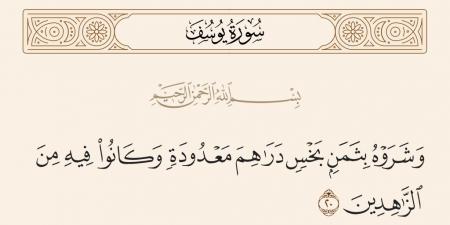 سُورَةُ يُوسُفَ
بِسْمِ اللَّهِ الرَّحْمَٰنِ الرَّحِيمِ
وَشَرَوْهُ بِثَمَنٍۭ بَخْسٖ دَرَٰهِمَ مَعْدُودَةٖ وَكَانُوا۟ فِيهِ مِنَ
ٱلزَّٰهِدِينَ ٢٠